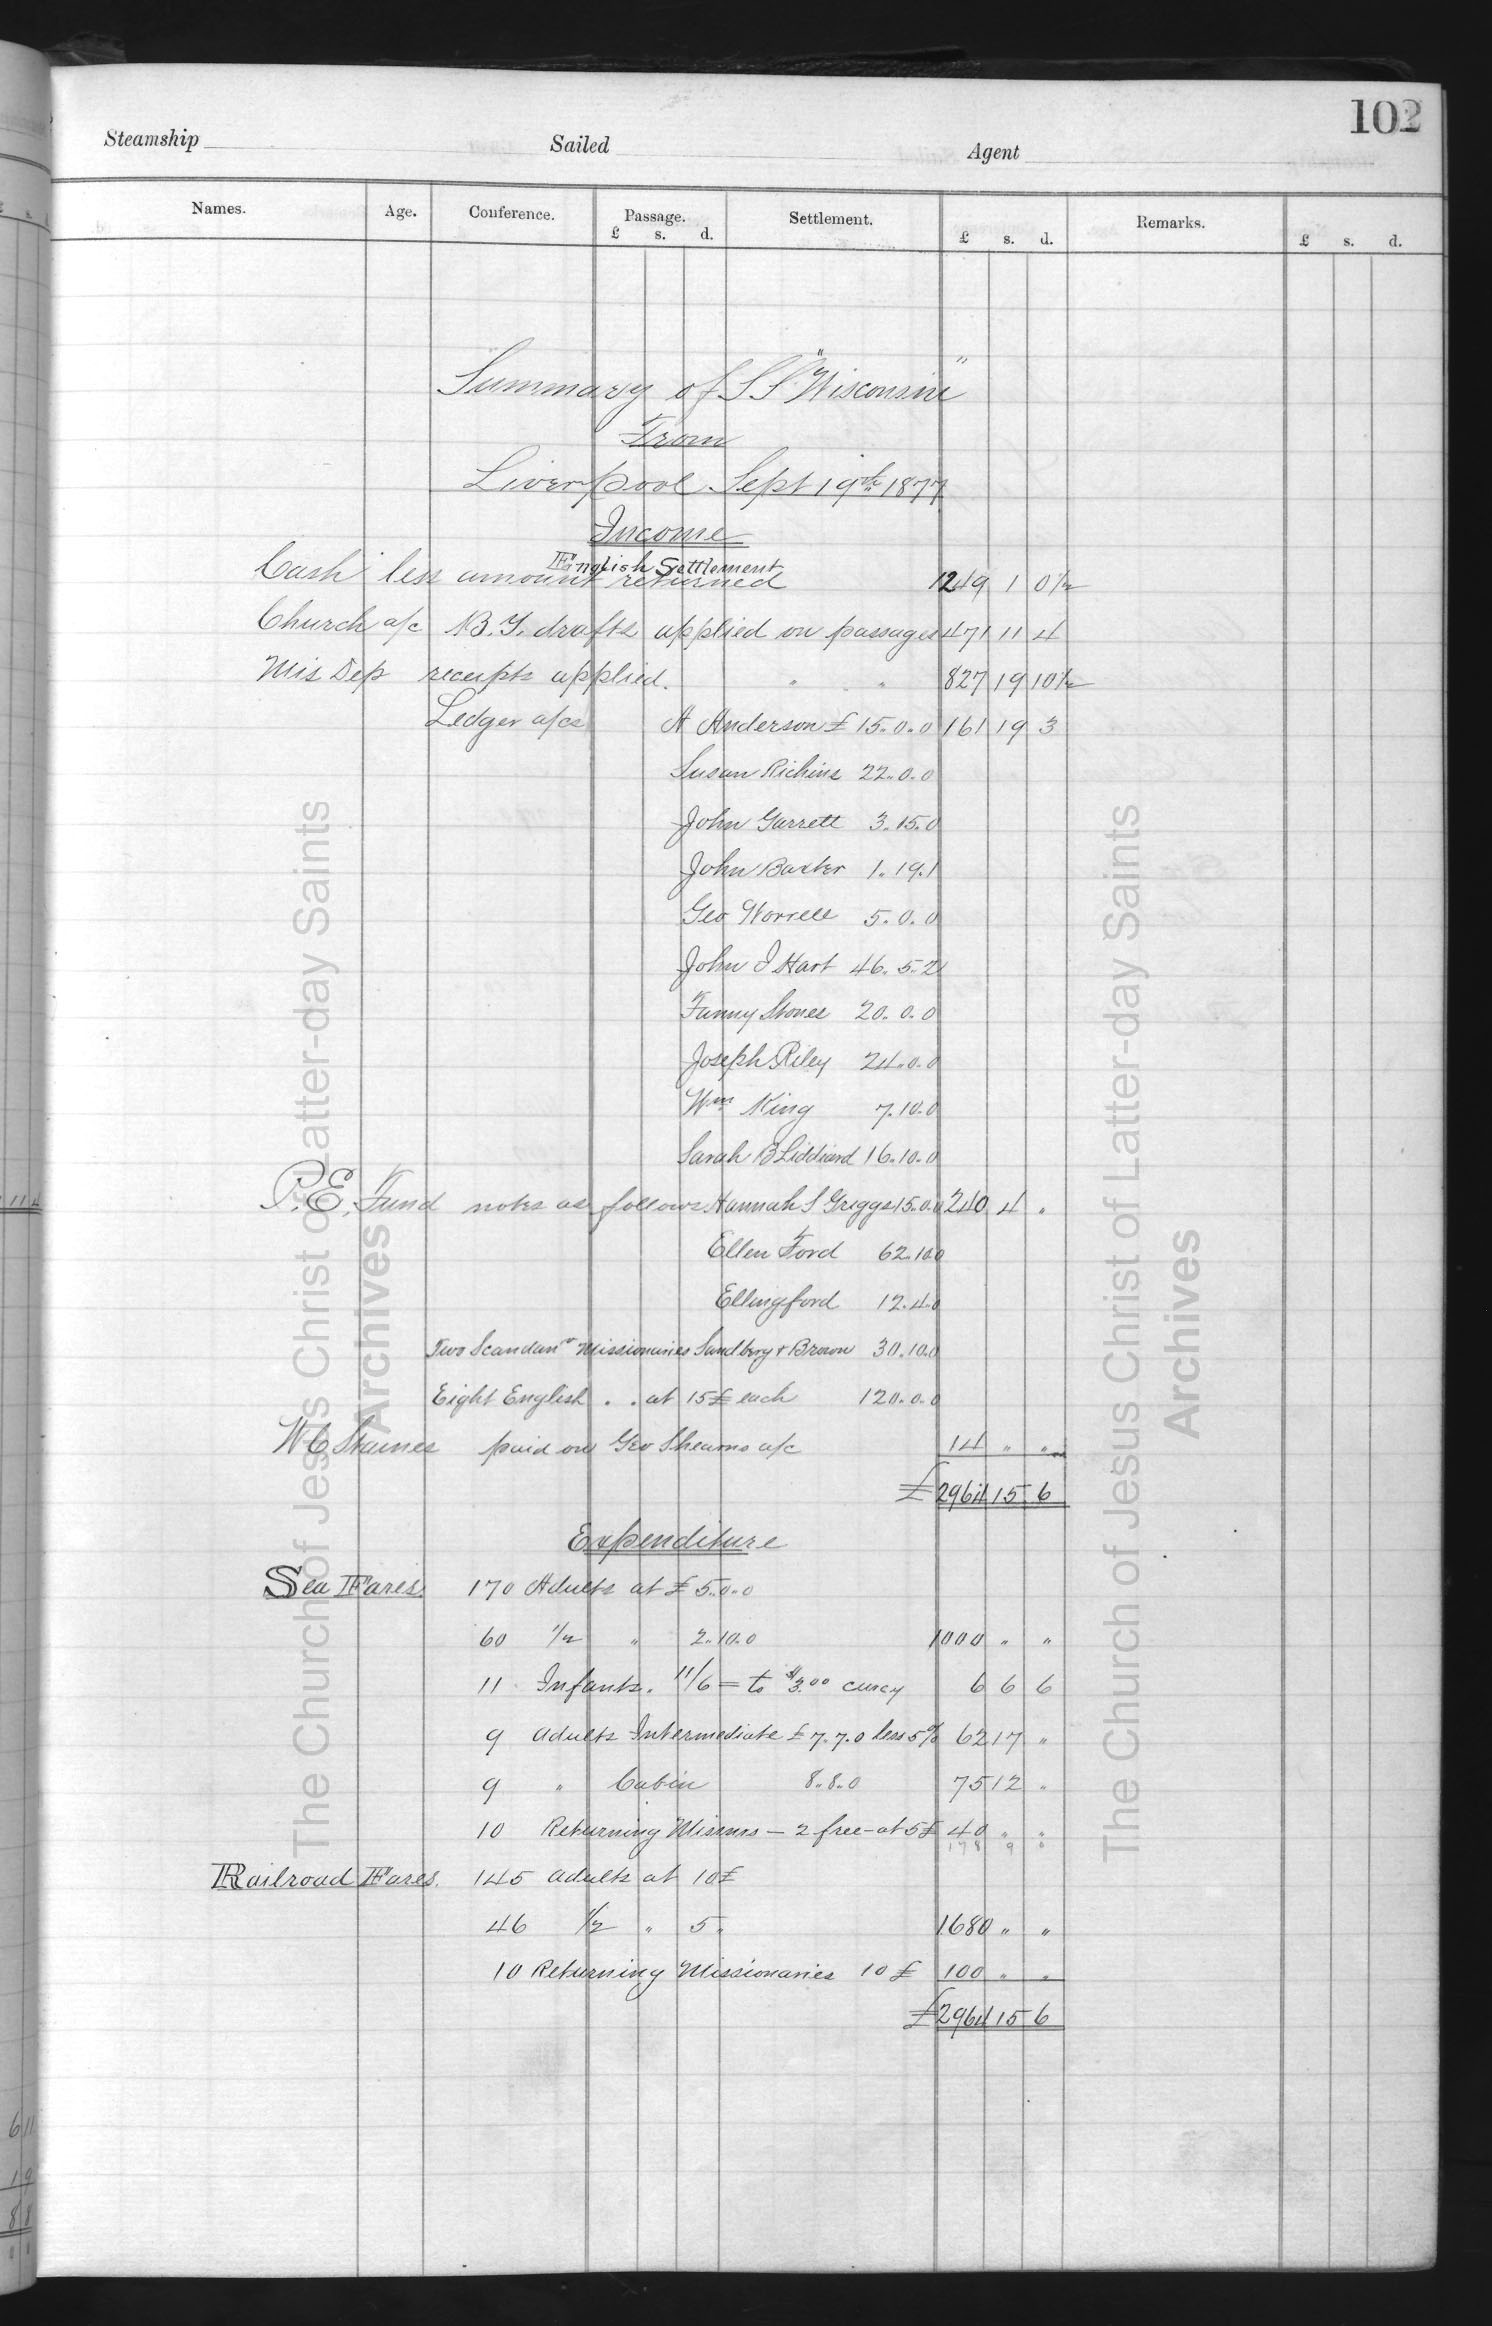 102
Steamship Sailed Agent
Names. Age. Conference. Passage. Settlement. Remarks.
£ s. d. £ s. d. £ s. d.
Summary of S S "Wisconsin"
From
Liverpool Sept 19th 1877
Income
English Settlement
Cash less amount returned 1249 1 0½
Church a/c B.Y. drafts applied on passages 471 11 4
Mis Dep receipts applied. " " 827 19 10½
Ledger a/cs A Anderson £ 15.0.0 161 19 3
Susan Richins 22.0.0
John Garrett 3.15.0
John Baxter 1.19.1
Geo Worrell 5.0.0
John I Hart 46.5.2
Fanny Stones 20.0.0
Joseph Riley 24.0.0
Wm King 7.10.0
Sarah B Liddiard 16.10.0
P.E. Fund notes as follows Hannah S Griggs 15.0.0 240 4 "
Ellen Ford 62.10.0
Ellingford 12.4.0
Two Scandanv Missionaries Sandberg & Brown 30.10.0
Eight English . . at 15£ each 120.0.0
W C Staines paid on Geo Shearns a/c 14 " "
£2964 15 6
Expenditure
Sea Fares 170 Adults at £ 5.0.0
60 ½ " 2.10.0 1000 " "
11 Infants. 11/6 = to $3.00 curcy 6 6 6
9 Adults Intermediate £7.7.0 less 5% 62 17 "
9 " Cabin 8.8.0 75 12 "
10 Returning Missnrs – 2 free – at 5£ 40 " "
178 9 6
Railroad Fares. 145 adults at 10£
46 ½ " 5 " 1680 " "
10 Returning Missionaries 10 £ 100 " "
£2964 15 6
The Church of Jesus Christ of Latter-day Saints
Archives
The Church of Jesus Christ of Latter-day Saints
Archives